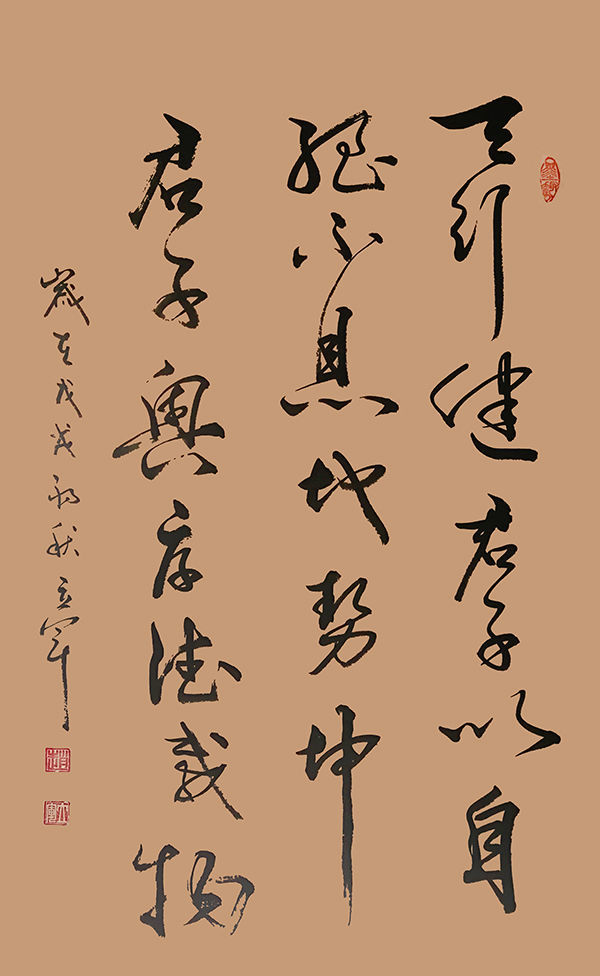 天行健君子以自
强不息地势坤
君子厚德載物
歲在戊戌初秋立军